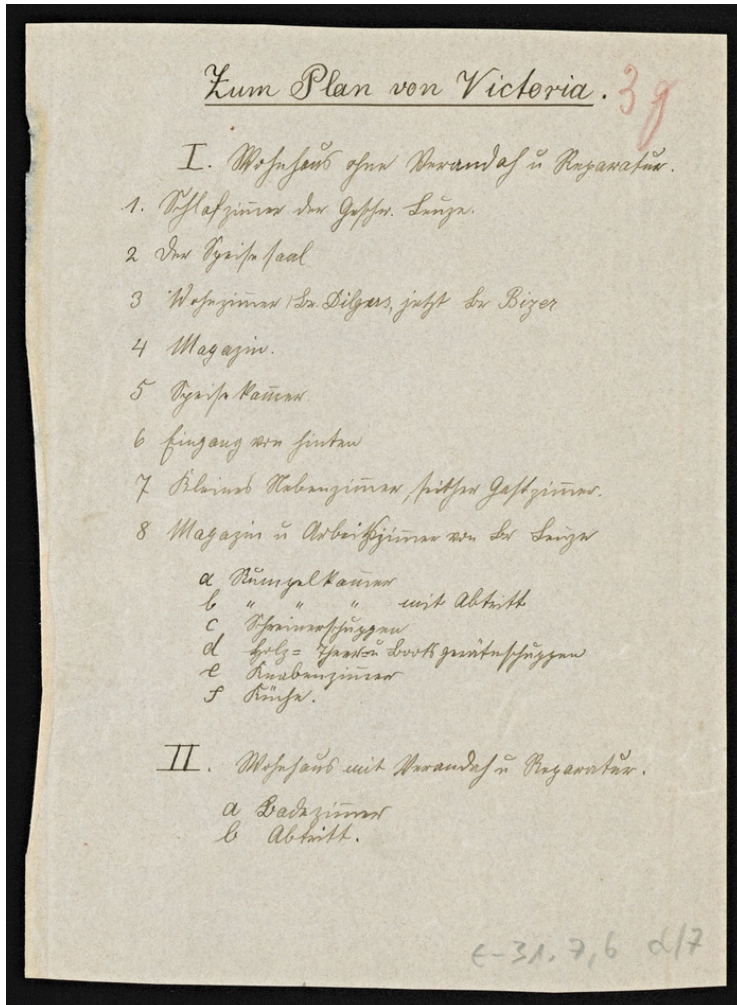 Zum Plan von Victoria.
3g
I. Wohnhaus ohne Verandah u Reparatur.
1. Schlafzimmer der Geschw. Leuze.
2 Der Speisesaal
3 Wohnzimmer Br. Dilgers, jetzt Br Bizer
4 Magazin.
5 Speisekam̅er
6 Eingang von hinten
7 Kleines Nebenzimmer, seither Gastzim̅er.
8 Magazin u Arbeitszim̅er von Br Leuze
a Rumpelkam̅er
b " " " mit Abtritt
c Schreinerschuppen
d Holz= Theer= u Bootsgeräteschuppen
e Knabenzimmer
f Küche.
II. Wohnhaus mit Verandah u Reparatur.
a Badezim̅er
b Abtritt.
E-31.7,6 d/7